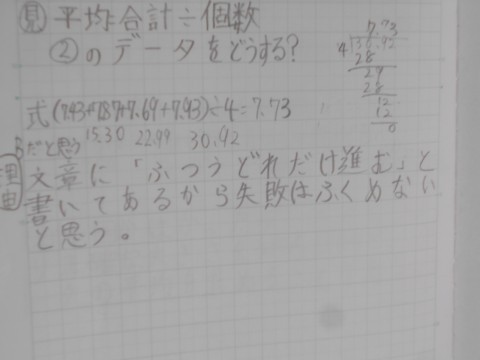 見 平均=合計÷個数
②のデータをどうする?
7.73
4 30.92
28
29
28
12
12
0
式(7.43+7.87+7.69+7.93)÷4=7.73
15.30 22.99 30.92
Bだと思う
理由 文章に「ふつうどれだけ進む」と
書いてあるから失敗はふくめない
と思う。